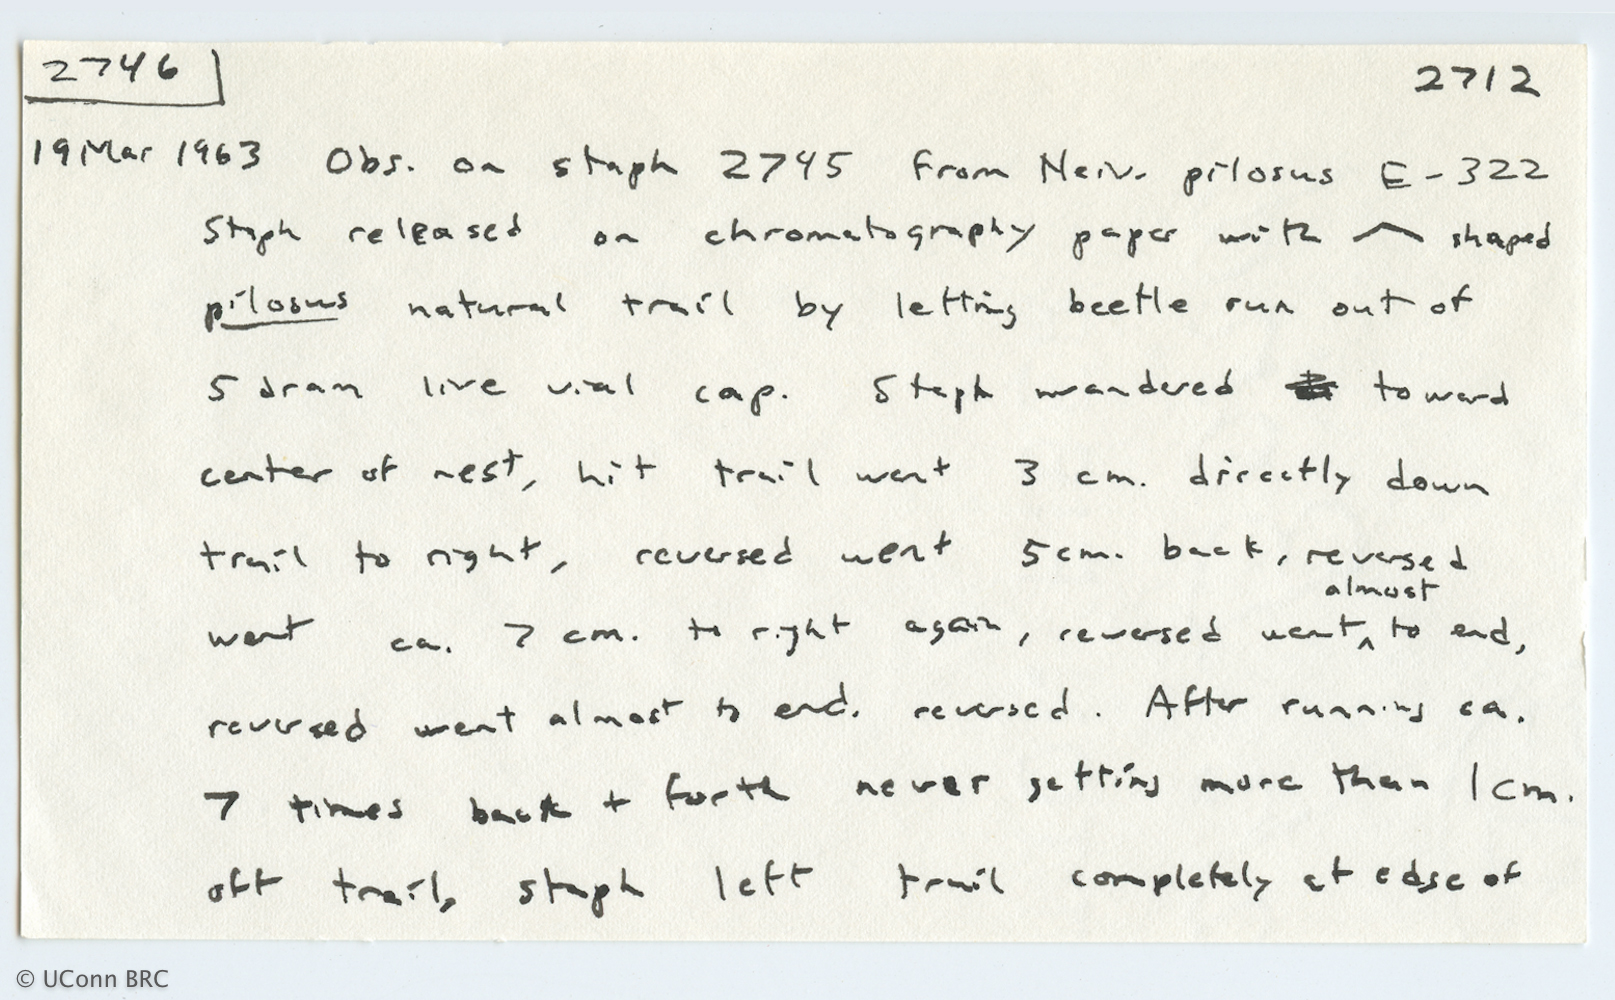 2746
2712
19 Mar 1963 Obs. on staph 2745 from Neiv. pilosus E-322
Staph released on chromatography paper with ︿ shaped
pilosus natural trail by letting beetle run out of
5 dram live vial cap. Staph wandered toward
center of nest, hit trail went 3 cm. directly down
trail to right, reversed went 5 cm. back, reversed
went ca. 7 cm. to right again, reversed went almost to end,
reversed went almost to end. reversed. After running ca.
7 times back + forth never getting more than 1 cm.
off trail, staph left trail completely at edge of
© UConn BRC